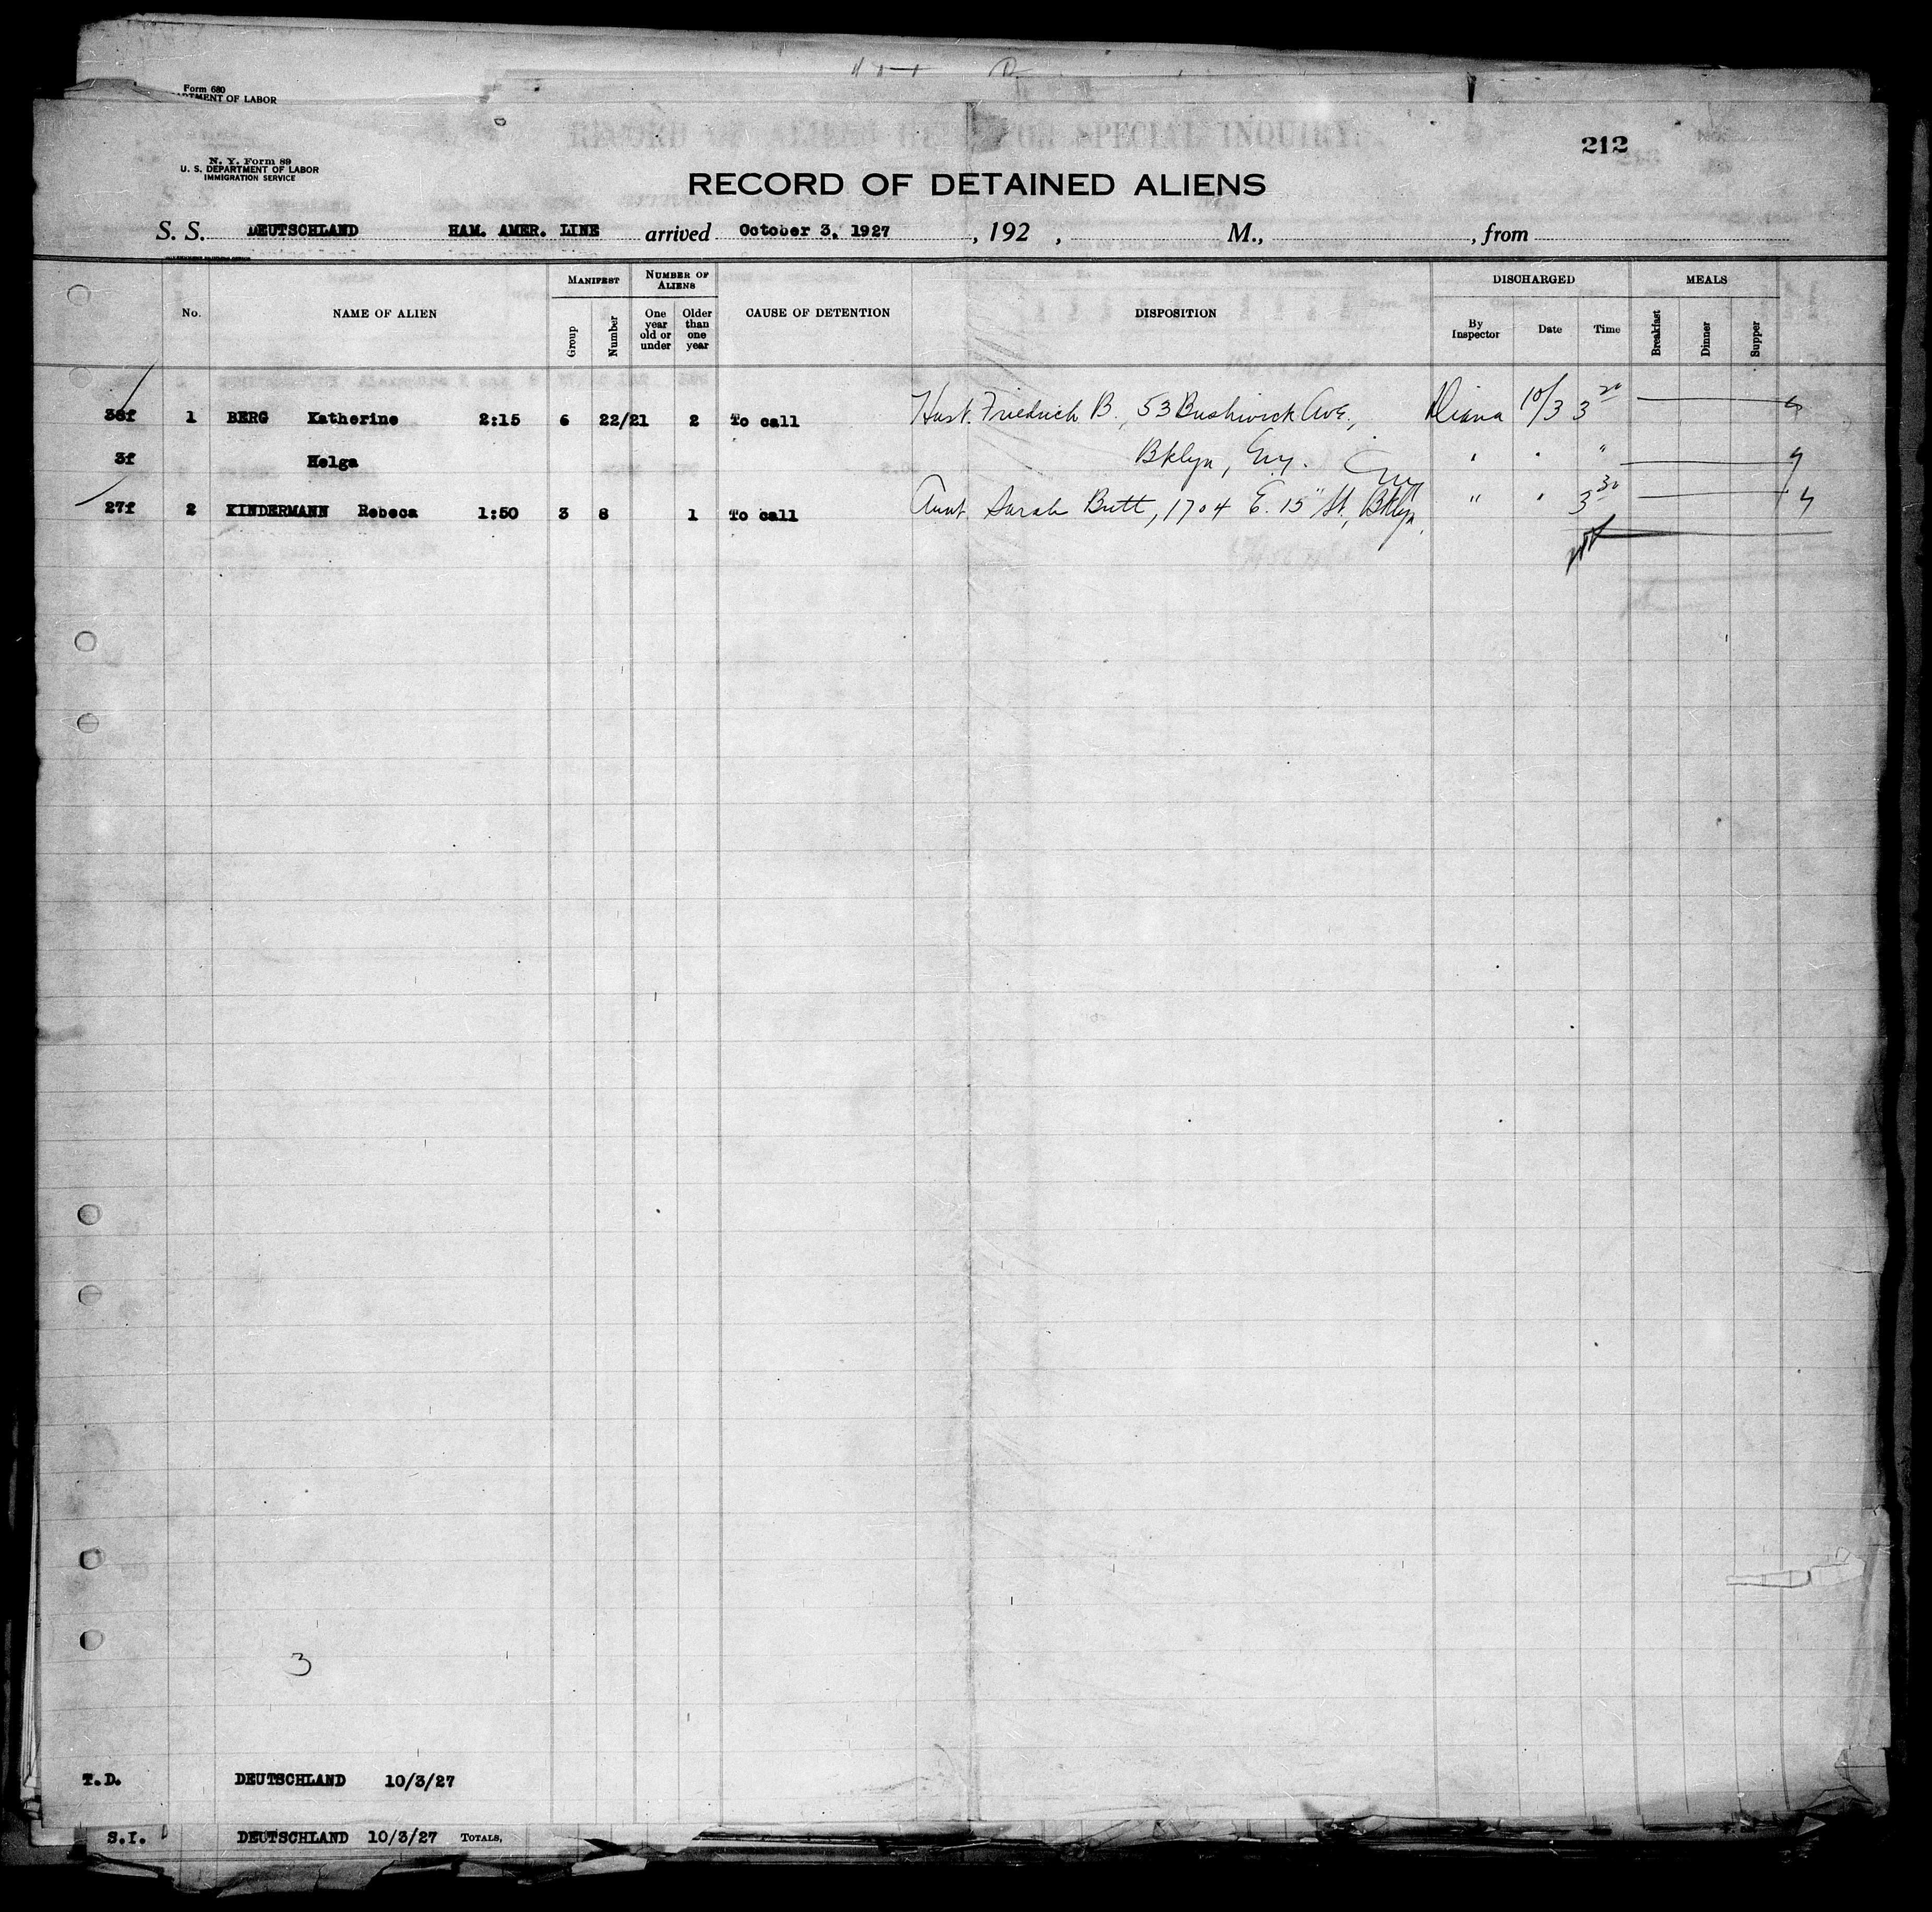 Form 680
DEPARTMENT OF LABOR
N. Y. Form 89
U. S. DEPARTMENT OF LABOR
IMMIGRATION SERVICE
212
RECORD OF DETAINED ALIENS
S. S. DEUTSCHLAND HAM. AMER. LINE arrived October 3, 1927, 192 , M., , from
No. NAME OF ALIEN MANIFEST Group Number NUMBER OF ALIENS One year old or under Older than one year CAUSE OF DETENTION DISPOSITION DISCHARGED By Inspector Date Time MEALS Breakfast Dinner Supper
1 BERG Katherine 2:15 6 22/21 2 To call Husb. Friedrich B., 53 Bushwick Ave., Diana 10/3 3 20
3f Helga Bklyn, Ny. " " "
27f 2 KINDERMANN Rebeca 1:50 3 8 1 To call Aunt. Sarah Butt, 1704 E. 15" St., Bklyn, Ny " " 3 30
3
T.D. DEUTSCHLAND 10/3/27
S.I. DEUTSCHLAND 10/3/27 TOTALS,